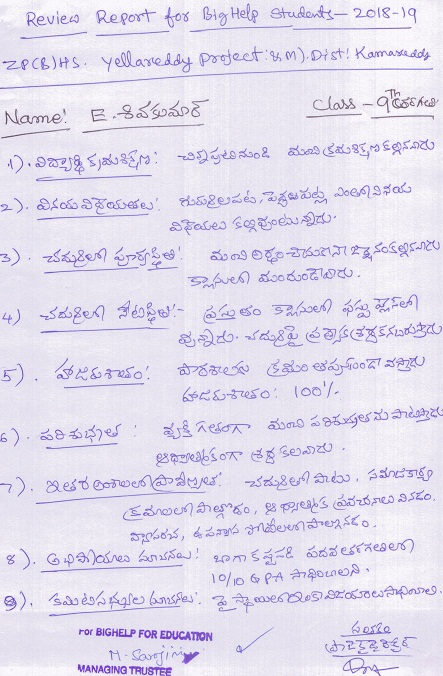 Review Report for BigHelp Students - 2018-19
ZP(B)HS. Yellareddy Project: &M). Dist: Kamareddy
Name: E. శివకుమార్ Class - 9th తరగతి
1). విద్యార్థి క్రమశిక్షణ: చిన్నప్పటినుండి మంచి క్రమశిక్షణ కల్గినవాడు
2). వినయ విధేయతలు: గురువులపట్ల, పెద్దలపట్ల ఎంతో వినయ
విధేయలు కల్గివుంటున్నాడు.
3). చదువులో పూర్వస్థితి: మంచి అర్థంచేసుకునే జ్ఞానం కల్గినవాడు
క్లాసులో ముందుండేవాడు.
4) చదువులో నేటిస్థితి:- ప్రస్తుతం క్లాసులో ఫస్టు ప్లేస్‌లో
వున్నాడు. చదువుపై ప్రత్యేక శ్రద్ధ కనబరుస్తాడు
5). హాజరుశాతం: పాఠశాలకు క్రమం తప్పకుండా వస్తాడు
హాజరుశాతం: 100%
6). పరిశుభ్రత: వ్యక్తిగతంగా మంచి పరిశుభ్రతను పాటిస్తాడు
ఆధ్యాత్మికంగా శ్రద్ధ కలవాడు.
7). ఇతర అంశాలలో ప్రావీణ్యత: చదువుతో పాటు, సమాజకార్య
క్రమాలలో పాల్గొనడం, ఆధ్యాత్మిక ప్రవచనాలు వినడం.
వ్యాసరచన, ఉపన్యాస పోటీలలో పాల్గొనడం.
8). అభిప్రాయాలు సూచనలు: బాగా కష్టపడి పదవ తరగతిలో
10/10 GPA సాధించాలని.
9). కమిటి సభ్యుల సూచనలు: పై స్థాయిలో ఇంకా విజయాలు సాధించాలి.
For BIGHELP FOR EDUCATION
MANAGING TRUSTEE
ప్రాజెక్ట్ డైరెక్టర్